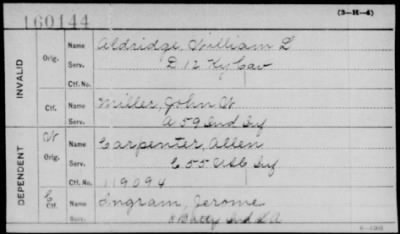 160144
(3-H-4)
INVALID
Orig.
Name Aldridge, William L
Serv. D 12 Ky Cav
Ctf. No.
Ctf.
Name Miller, John W
Serv. A 59 Ind Inf
DEPENDENT
W
Orig.
Name Carpenter, Allen
Serv. C 55 Inf
Ctf. No. 119094
C
Ctf.
Name Ingram, Jerome
Serv. Batty Ind L A